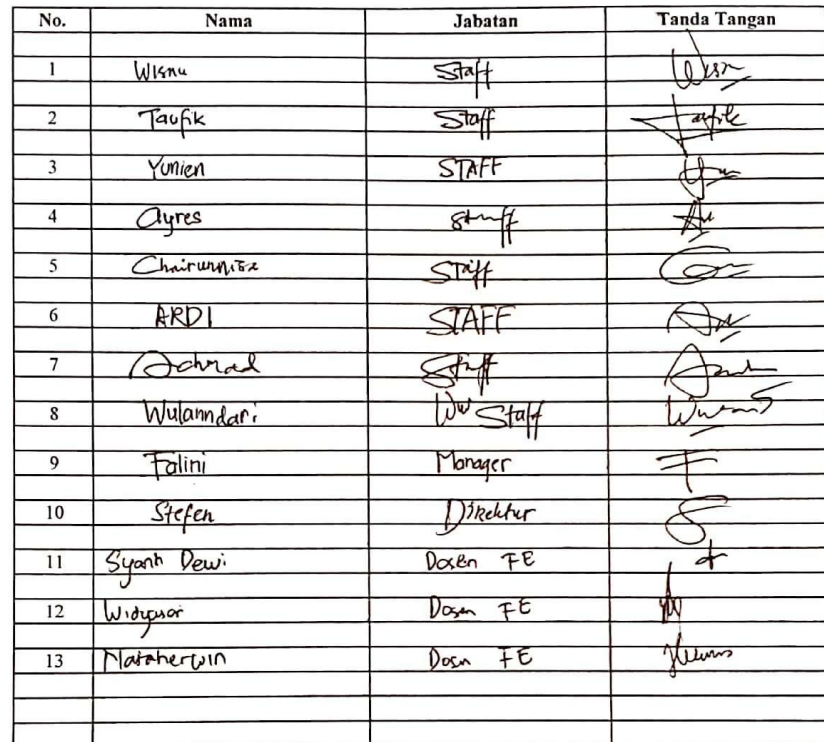 No. Nama Jabatan Tanda Tangan
1 Wisnu Staff Wisn
2 Taufik Staff Taufik
3 Yunien STAFF
4 Ayres Staff
5 Chairunnisa Staff
6 ARDI STAFF
7 Achmad Staff
8 Wulanndari Staff
9 Falini Manager F
10 Stefen Direktur S
11 Syanti Dewi Dosen FE
12 Widyasari Dosen FE
13 Dosen FE